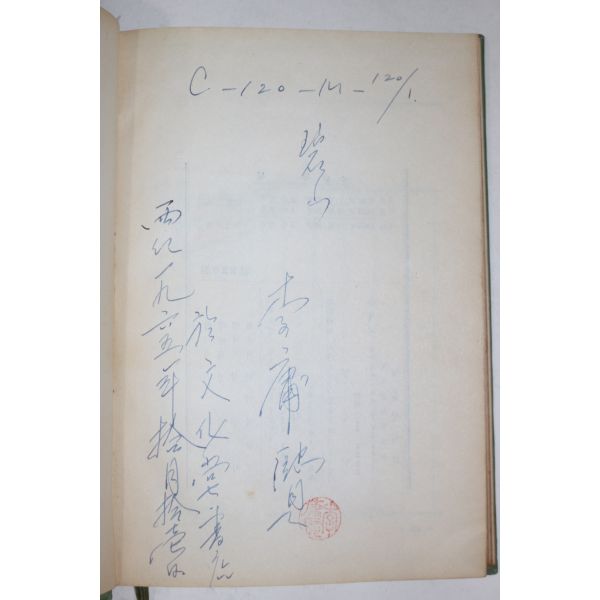 C-120-M-120/1.
碧山
李庸
於文化堂書店
西紀一九六五年拾月拾壹日